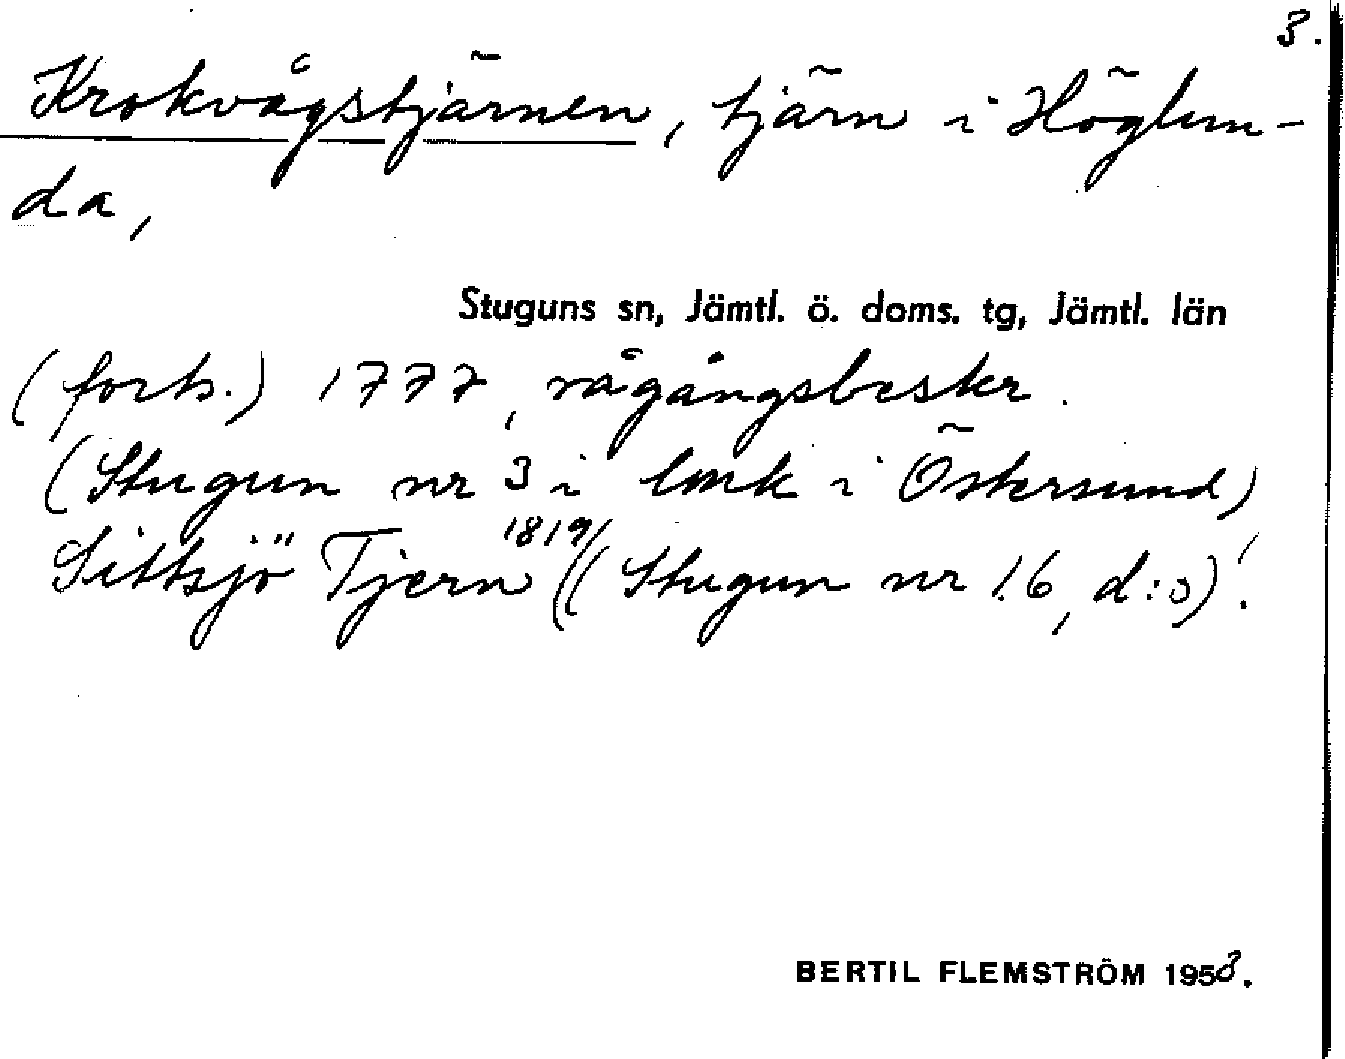 3.
Krokvågstjärnen, tjärn i Höglun-
da,
Stuguns sn, Jämtl. ö. doms. tg, Jämtl. län
(forts.) 1777, rågångsbeskr.
(Stugun nr 3 i lmk i Östersund)
Sittsjö Tjern 1819 (Stugun nr 16, d:o)!
BERTIL FLEMSTRÖM 1953.